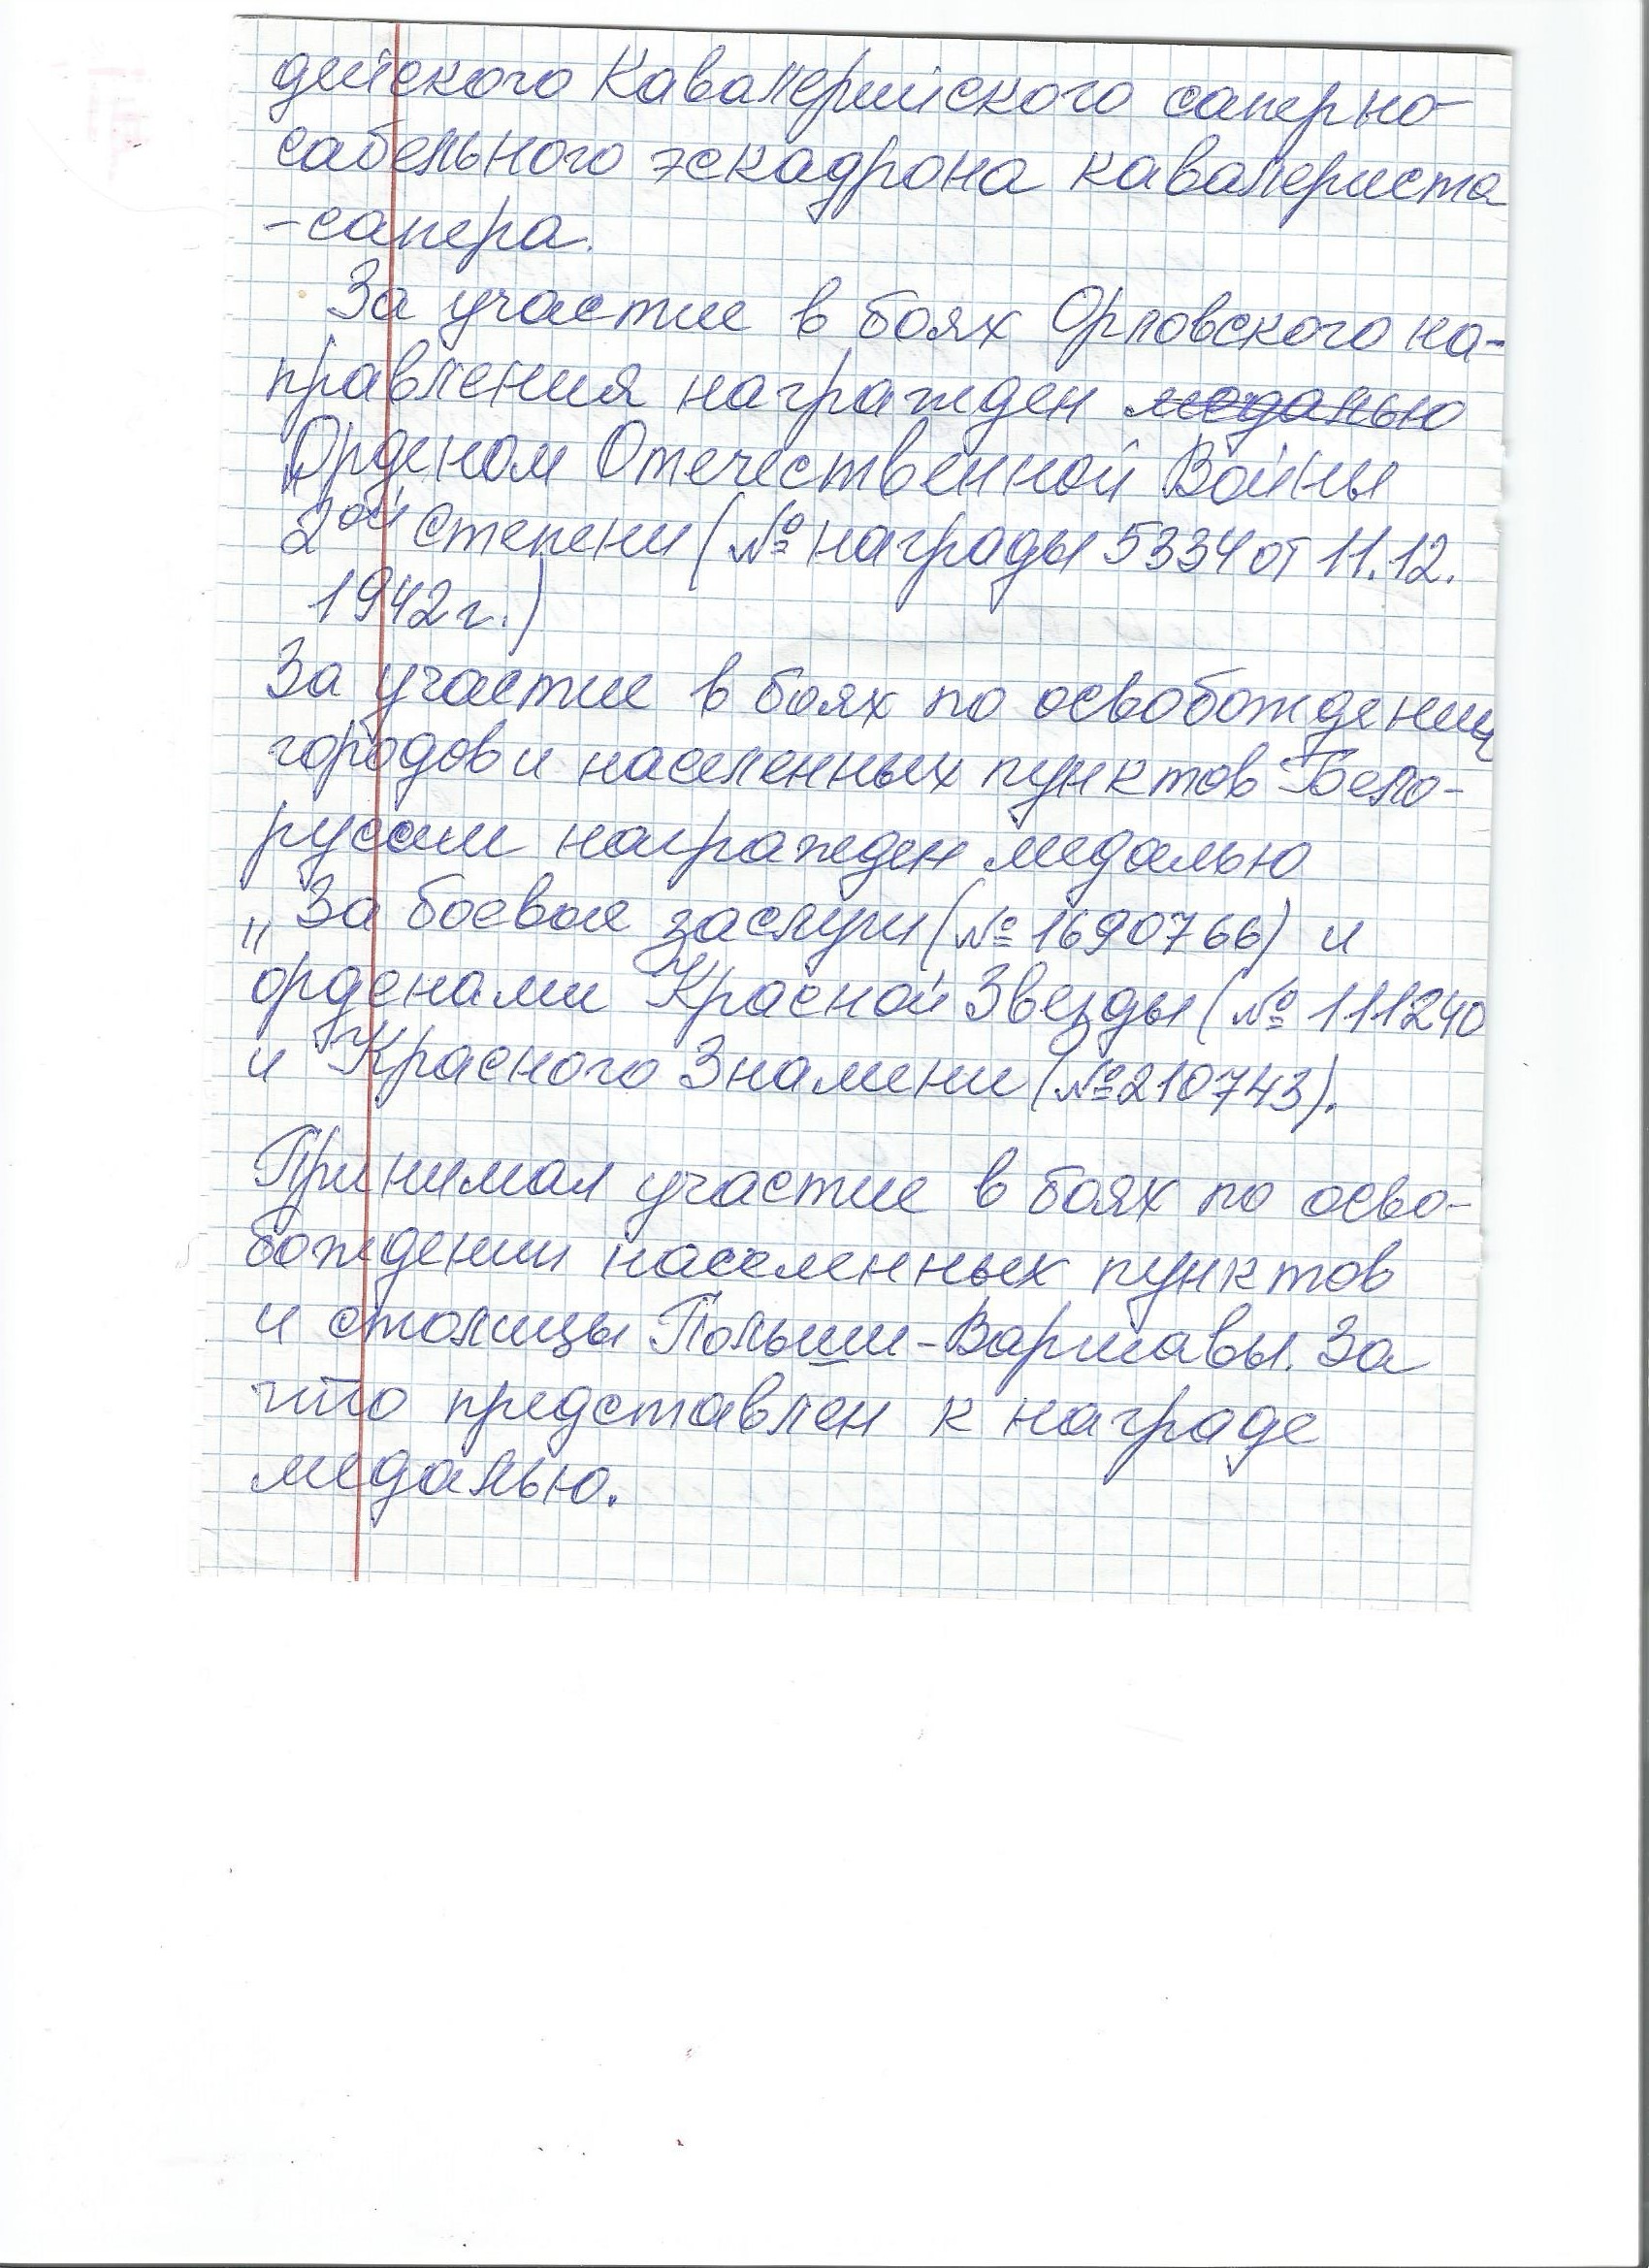 дейского Кавалерийского саперно-
сабельного эскадрона кавалериста
-сапера.
За участие в боях Орловского на-
правления награжден медалью
„Орденом Отечественной Войны
2ой степени (№ награды 5334 от 11.12.
1942 г.)
За участие в боях по освобождению
городов и населенных пунктов Бело-
русси награжден медалью
„За боевые заслуги (№ 1690766) и
орденами Красной Звезды (№ 111240
и Красного Знамени (№210743).
Принимал участие в боях по осво-
бождении населенных пунктов
и столицы Польши-Варшавы. За
что представлен к награде
медалью.